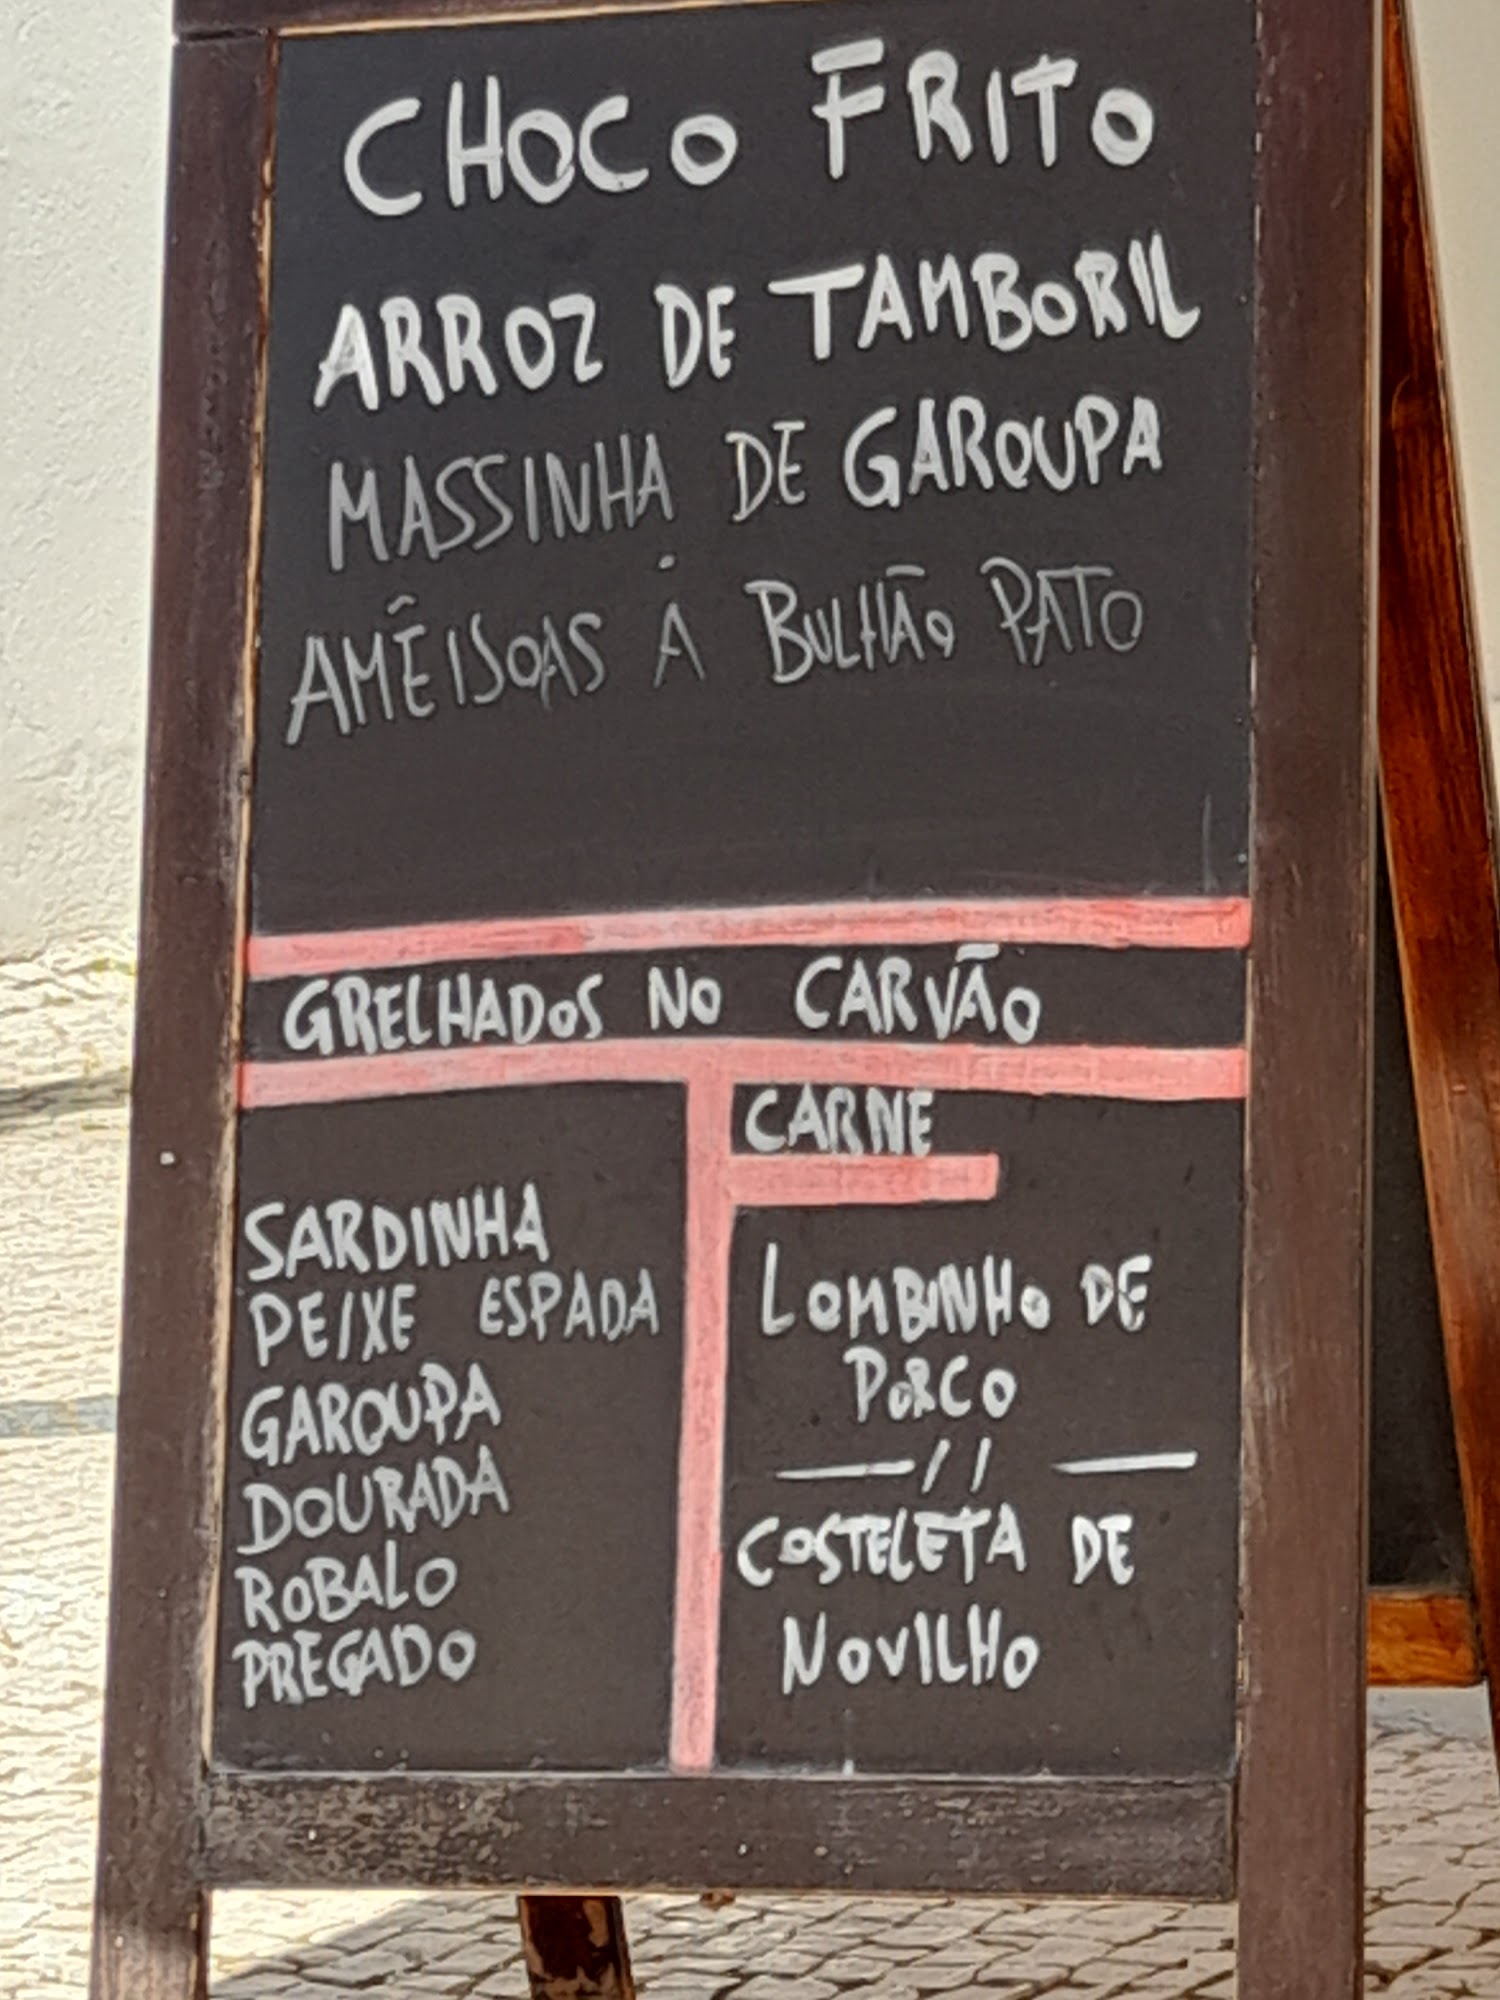 CHOCO FRITO
ARROZ DE TAMBORIL
MASSINHA DE GAROUPA
AMÊISOAS À BULHÃO PATO
GRELHADOS NO CARVÃO
SARDINHA
PEIXE ESPADA
GAROUPA
DOURADA
ROBALO
PREGADO
CARNE
LOMBINHO DE
PORCO
—//—
COSTELETA DE
NOVILHO